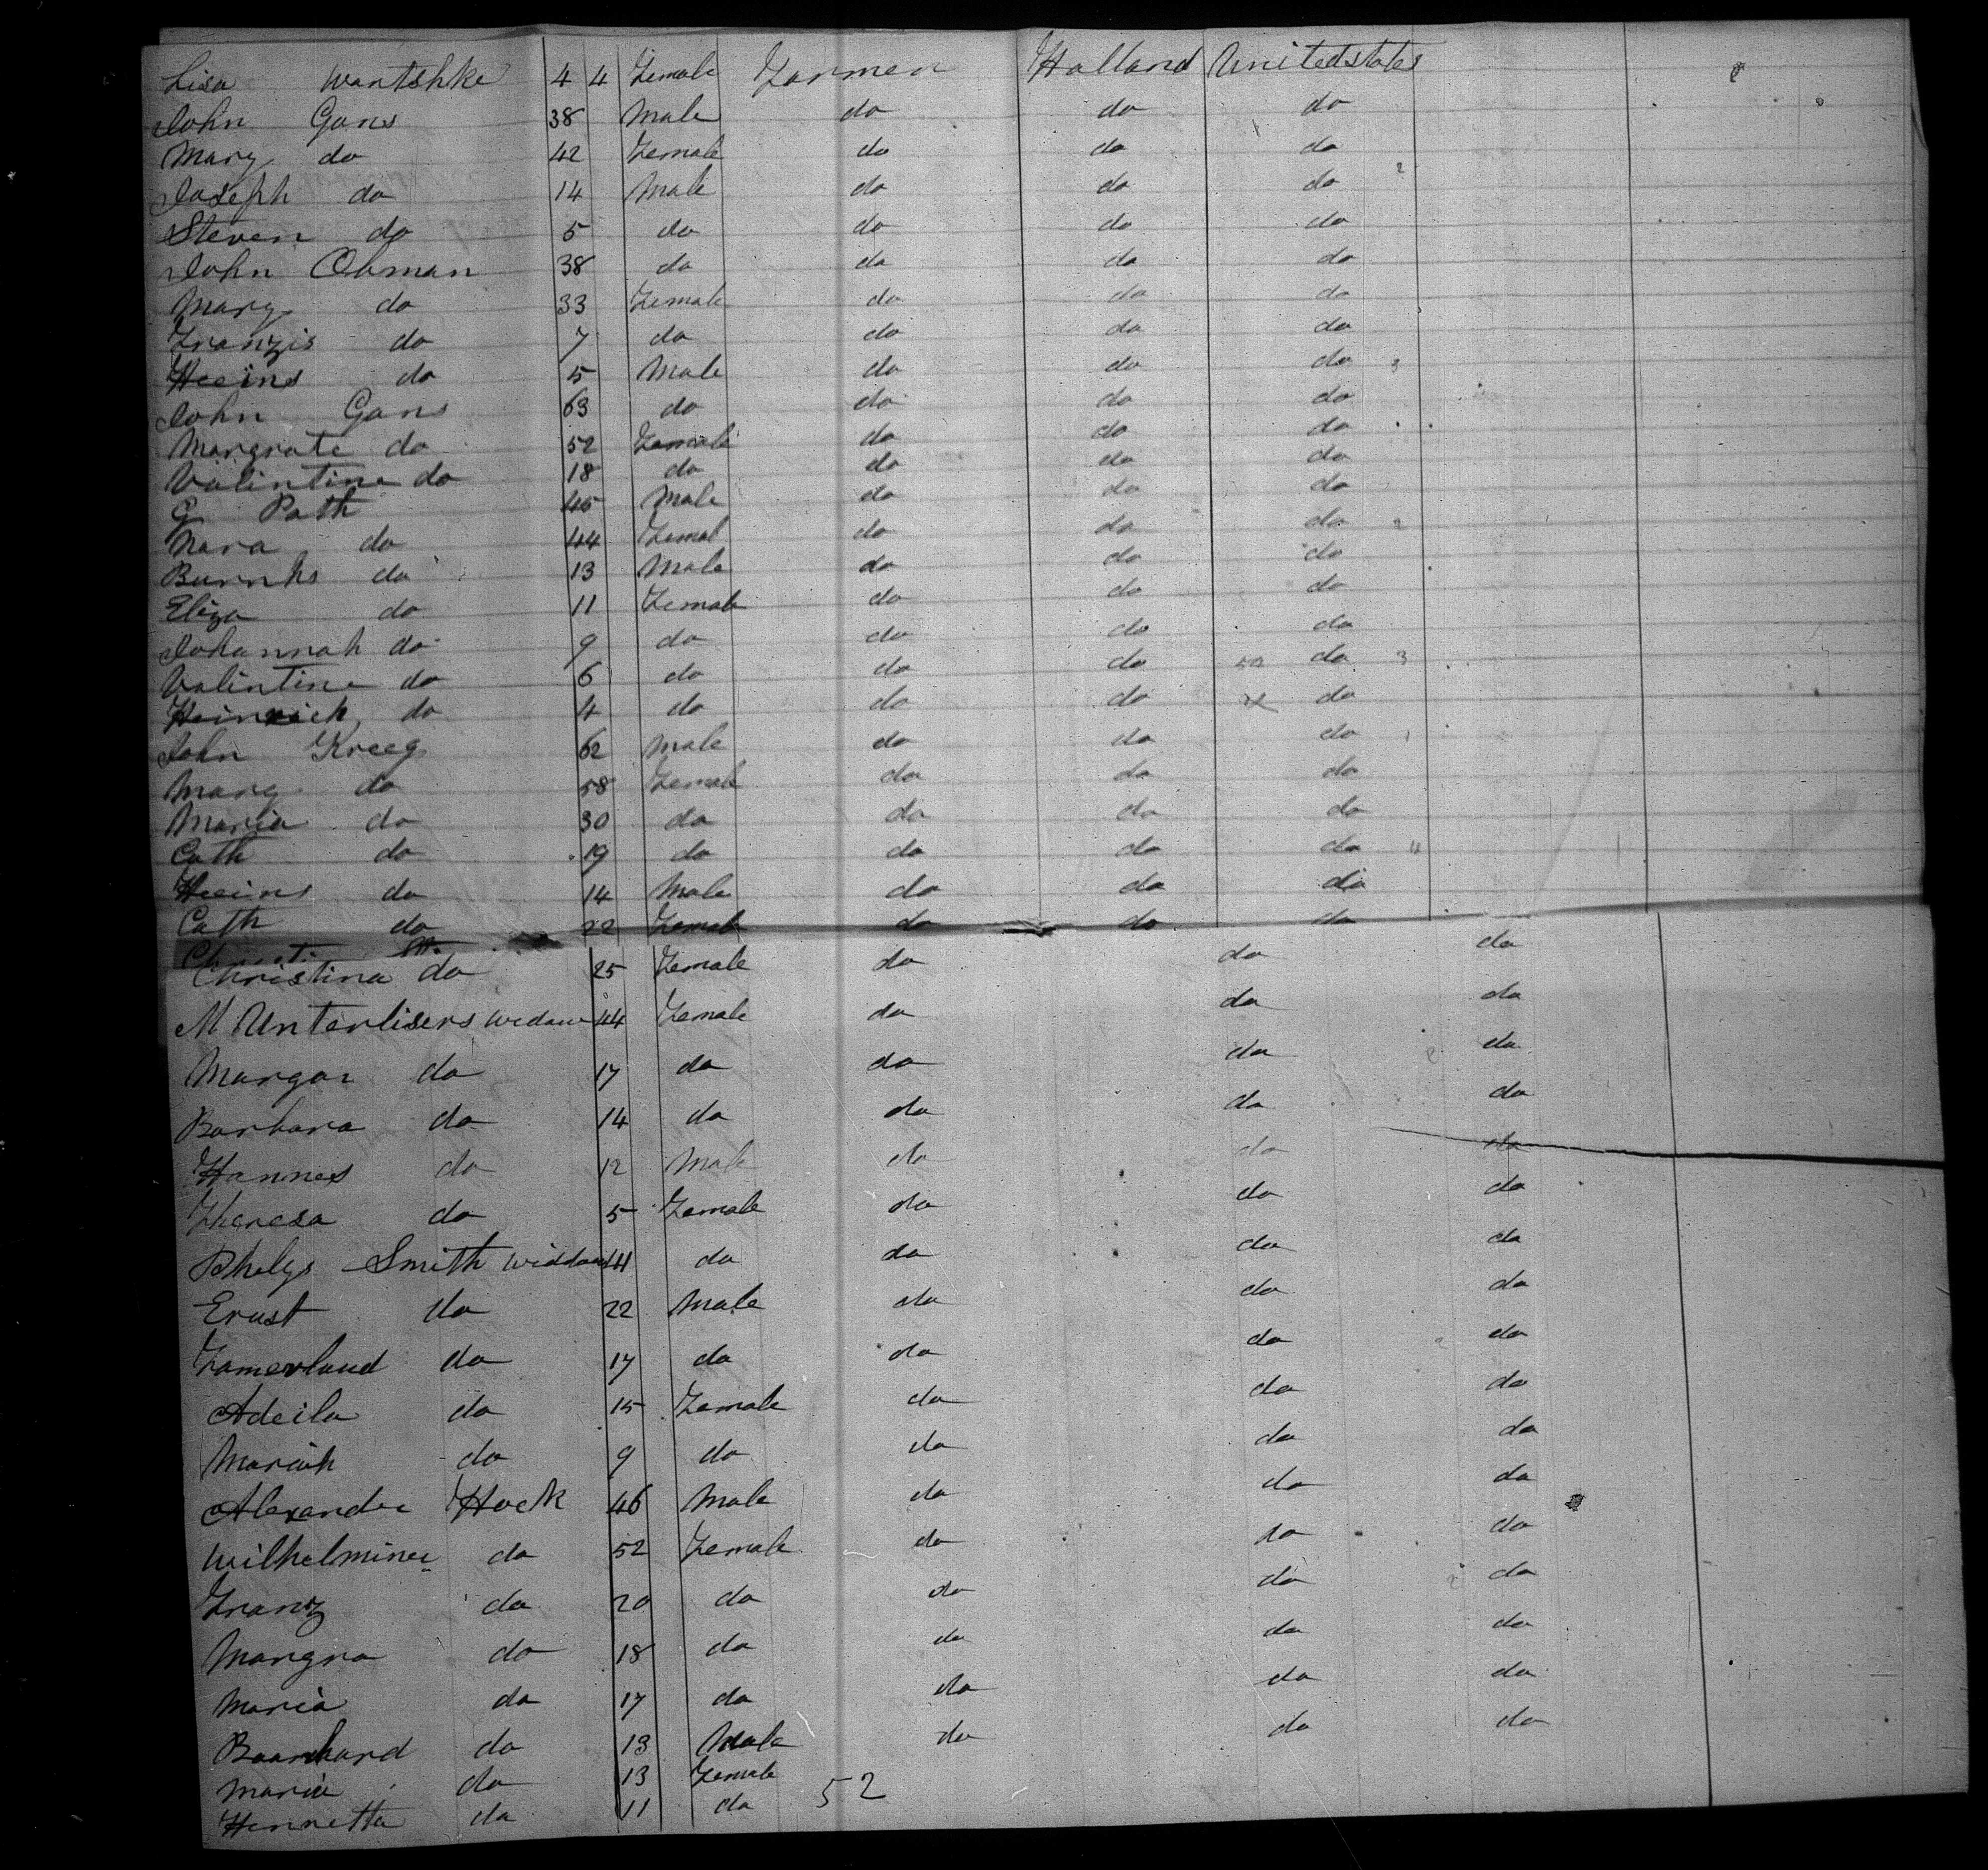 Lisa Wantshke 4 4 Female Farmer Holland Unitedstates
John Gans 38 Male do do do
Mary do 42 Female do do do
Joseph do 14 Male do do do 2
Steven do 5 do do do do
John Obman 38 do do do do
Mary do 33 Female do do do
Franzis do 7 do do do do
Heeins do 5 Male do do do 3
John Gans 63 do do do do
Margrate do 52 Female do do do
Valintine do 18 do do do do
G Path 45 Male do do do
Nara do 44 Femal do do do 2
Burnhs do 13 Male do do do
Eliza do 11 Female do do do
Johannah do 9 do do do do
Valintine do 6 do do do do 3
Heinrich do 4 do do do do
John Kreeg 62 Male do do do 1
Mary do 58 Female do do do
Maria do 30 do do do do
Cath do 19 do do do do 4
Heeins do 14 Male do do do
Cath do 22 Female do do do
Christina do 25 Female do do do
M Unterlisers Wedaw 44 Female do do do
Margar do 17 do do do do
Barbara do 14 do do do do
Hannes do 12 Male do do do
Theresa do 5 Female do do do
Phelys Smith Widdow 41 do do do do
Ernst do 22 Male do do do
do 17 do do do do
Adeila do 15 Female do do do
Mariah do 9 do do do do
Alexander Hock 46 Male do do do
Wilhelminer do 52 Female do do do
Franz do 20 do do do do
Margra do 18 do do do do
Maria do 17 do do do do
Baarnhard do 13 Male do do do
Maria do 13 Female
Henretta do 11 do 52